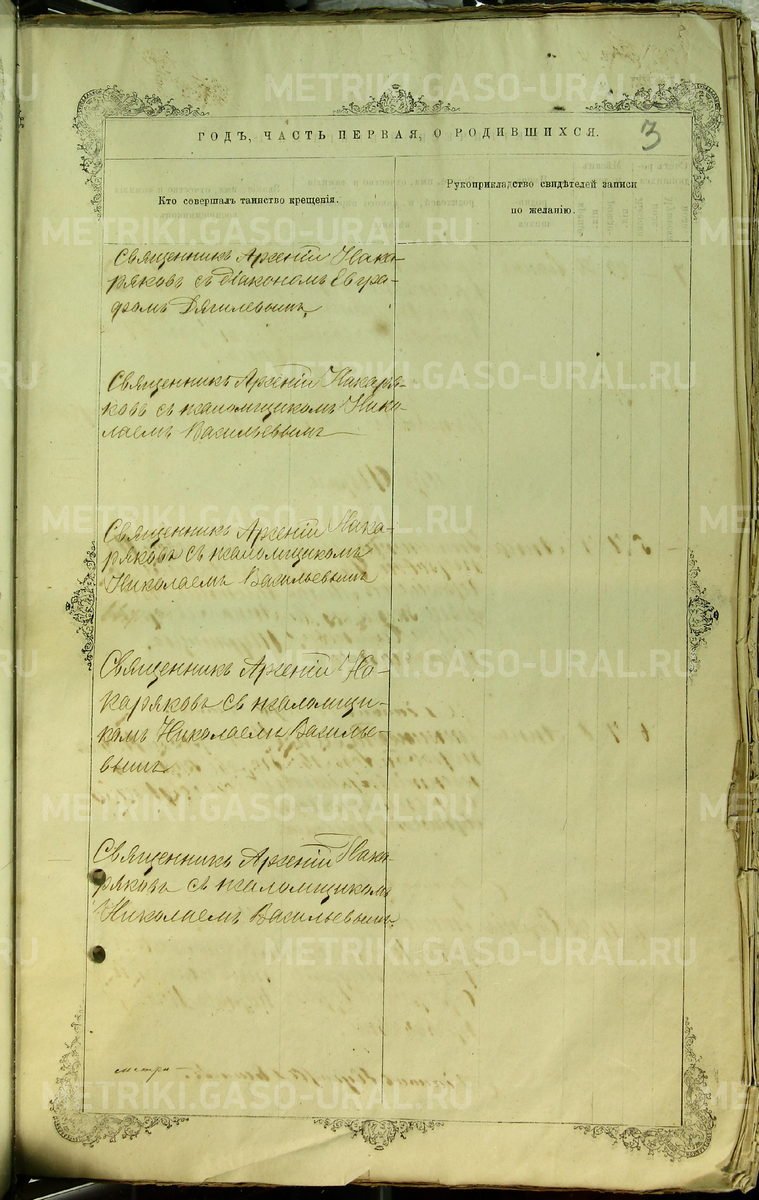 METRIKI.GASO-URAL.RU
ГОДЪ, ЧАСТЬ ПЕРВАЯ, О РОДИВШИХСЯ.
3
Кто совершалъ таинство крещенія.
Рукоприкладство свидѣтелей записи
по желанію.
Священникъ Арсеній Нака-
ряковъ съ діакономъ Евгра-
фомъ Дягилевымъ
Священникъ Арсеній Накаря-
ковъ съ псаломщикомъ Нико-
лаемъ Васильевымъ
Священникъ Арсеній Нака-
ряковъ съ псаломщикомъ
Николаемъ Васильевымъ
Священникъ Арсеній На-
каряковъ съ псаломщи-
комъ Николаемъ Василье-
вымъ
Священникъ Арсеній Нака-
ряковъ съ псаломщикомъ
Николаемъ Васильевымъ.